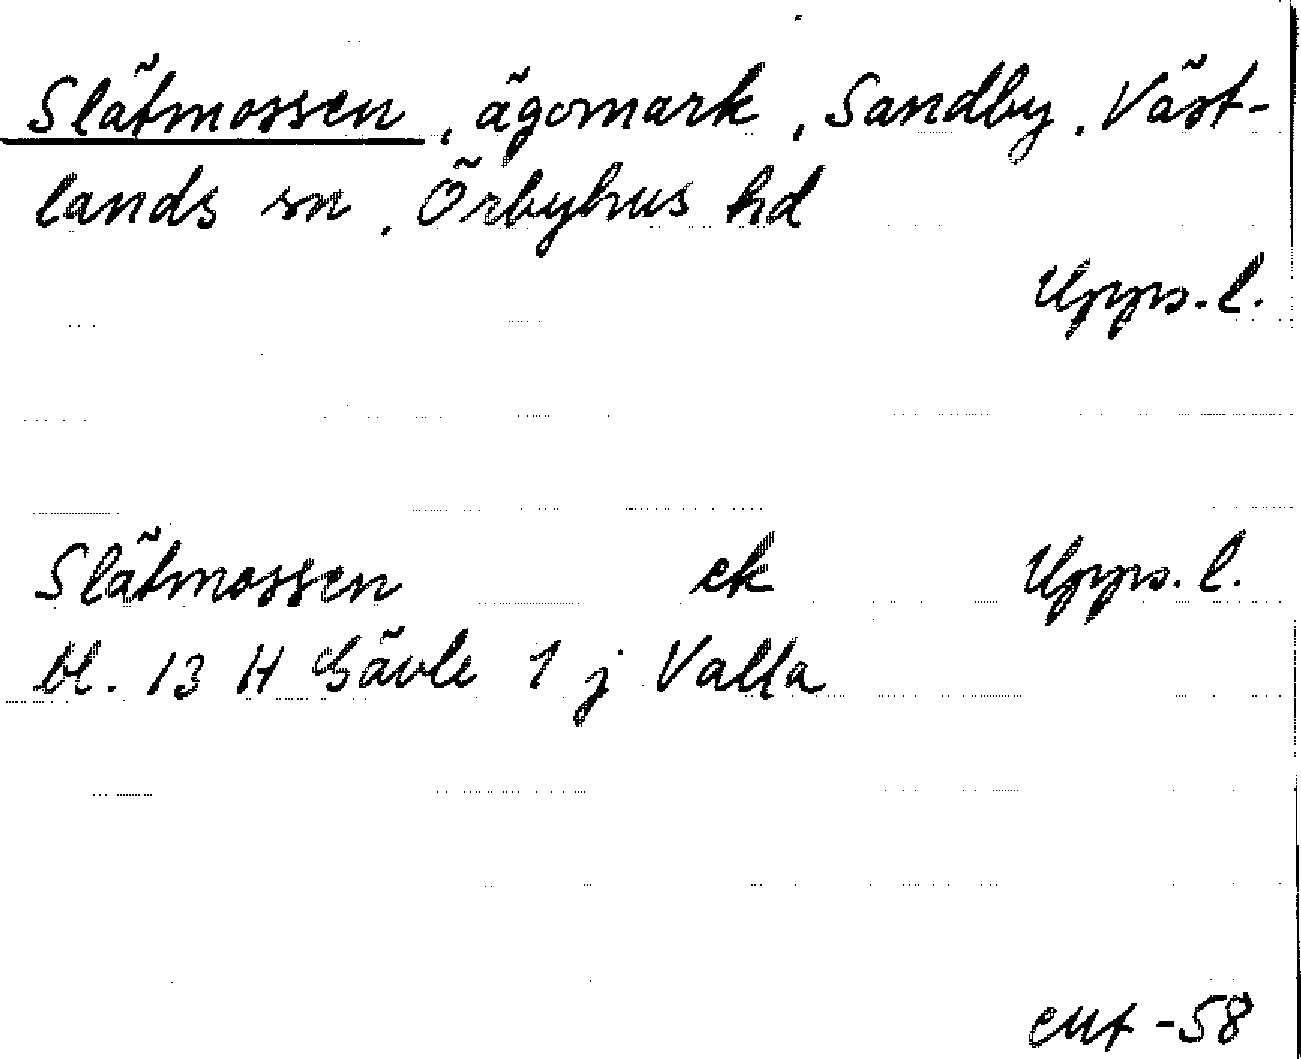 Slätmossen, ägomark, Sandby, Väst-
lands sn, Örbyhus hd
Upps. l.
Slätmossen ek Upps. l.
bl. 13 H Gävle 1 j Valla
-58